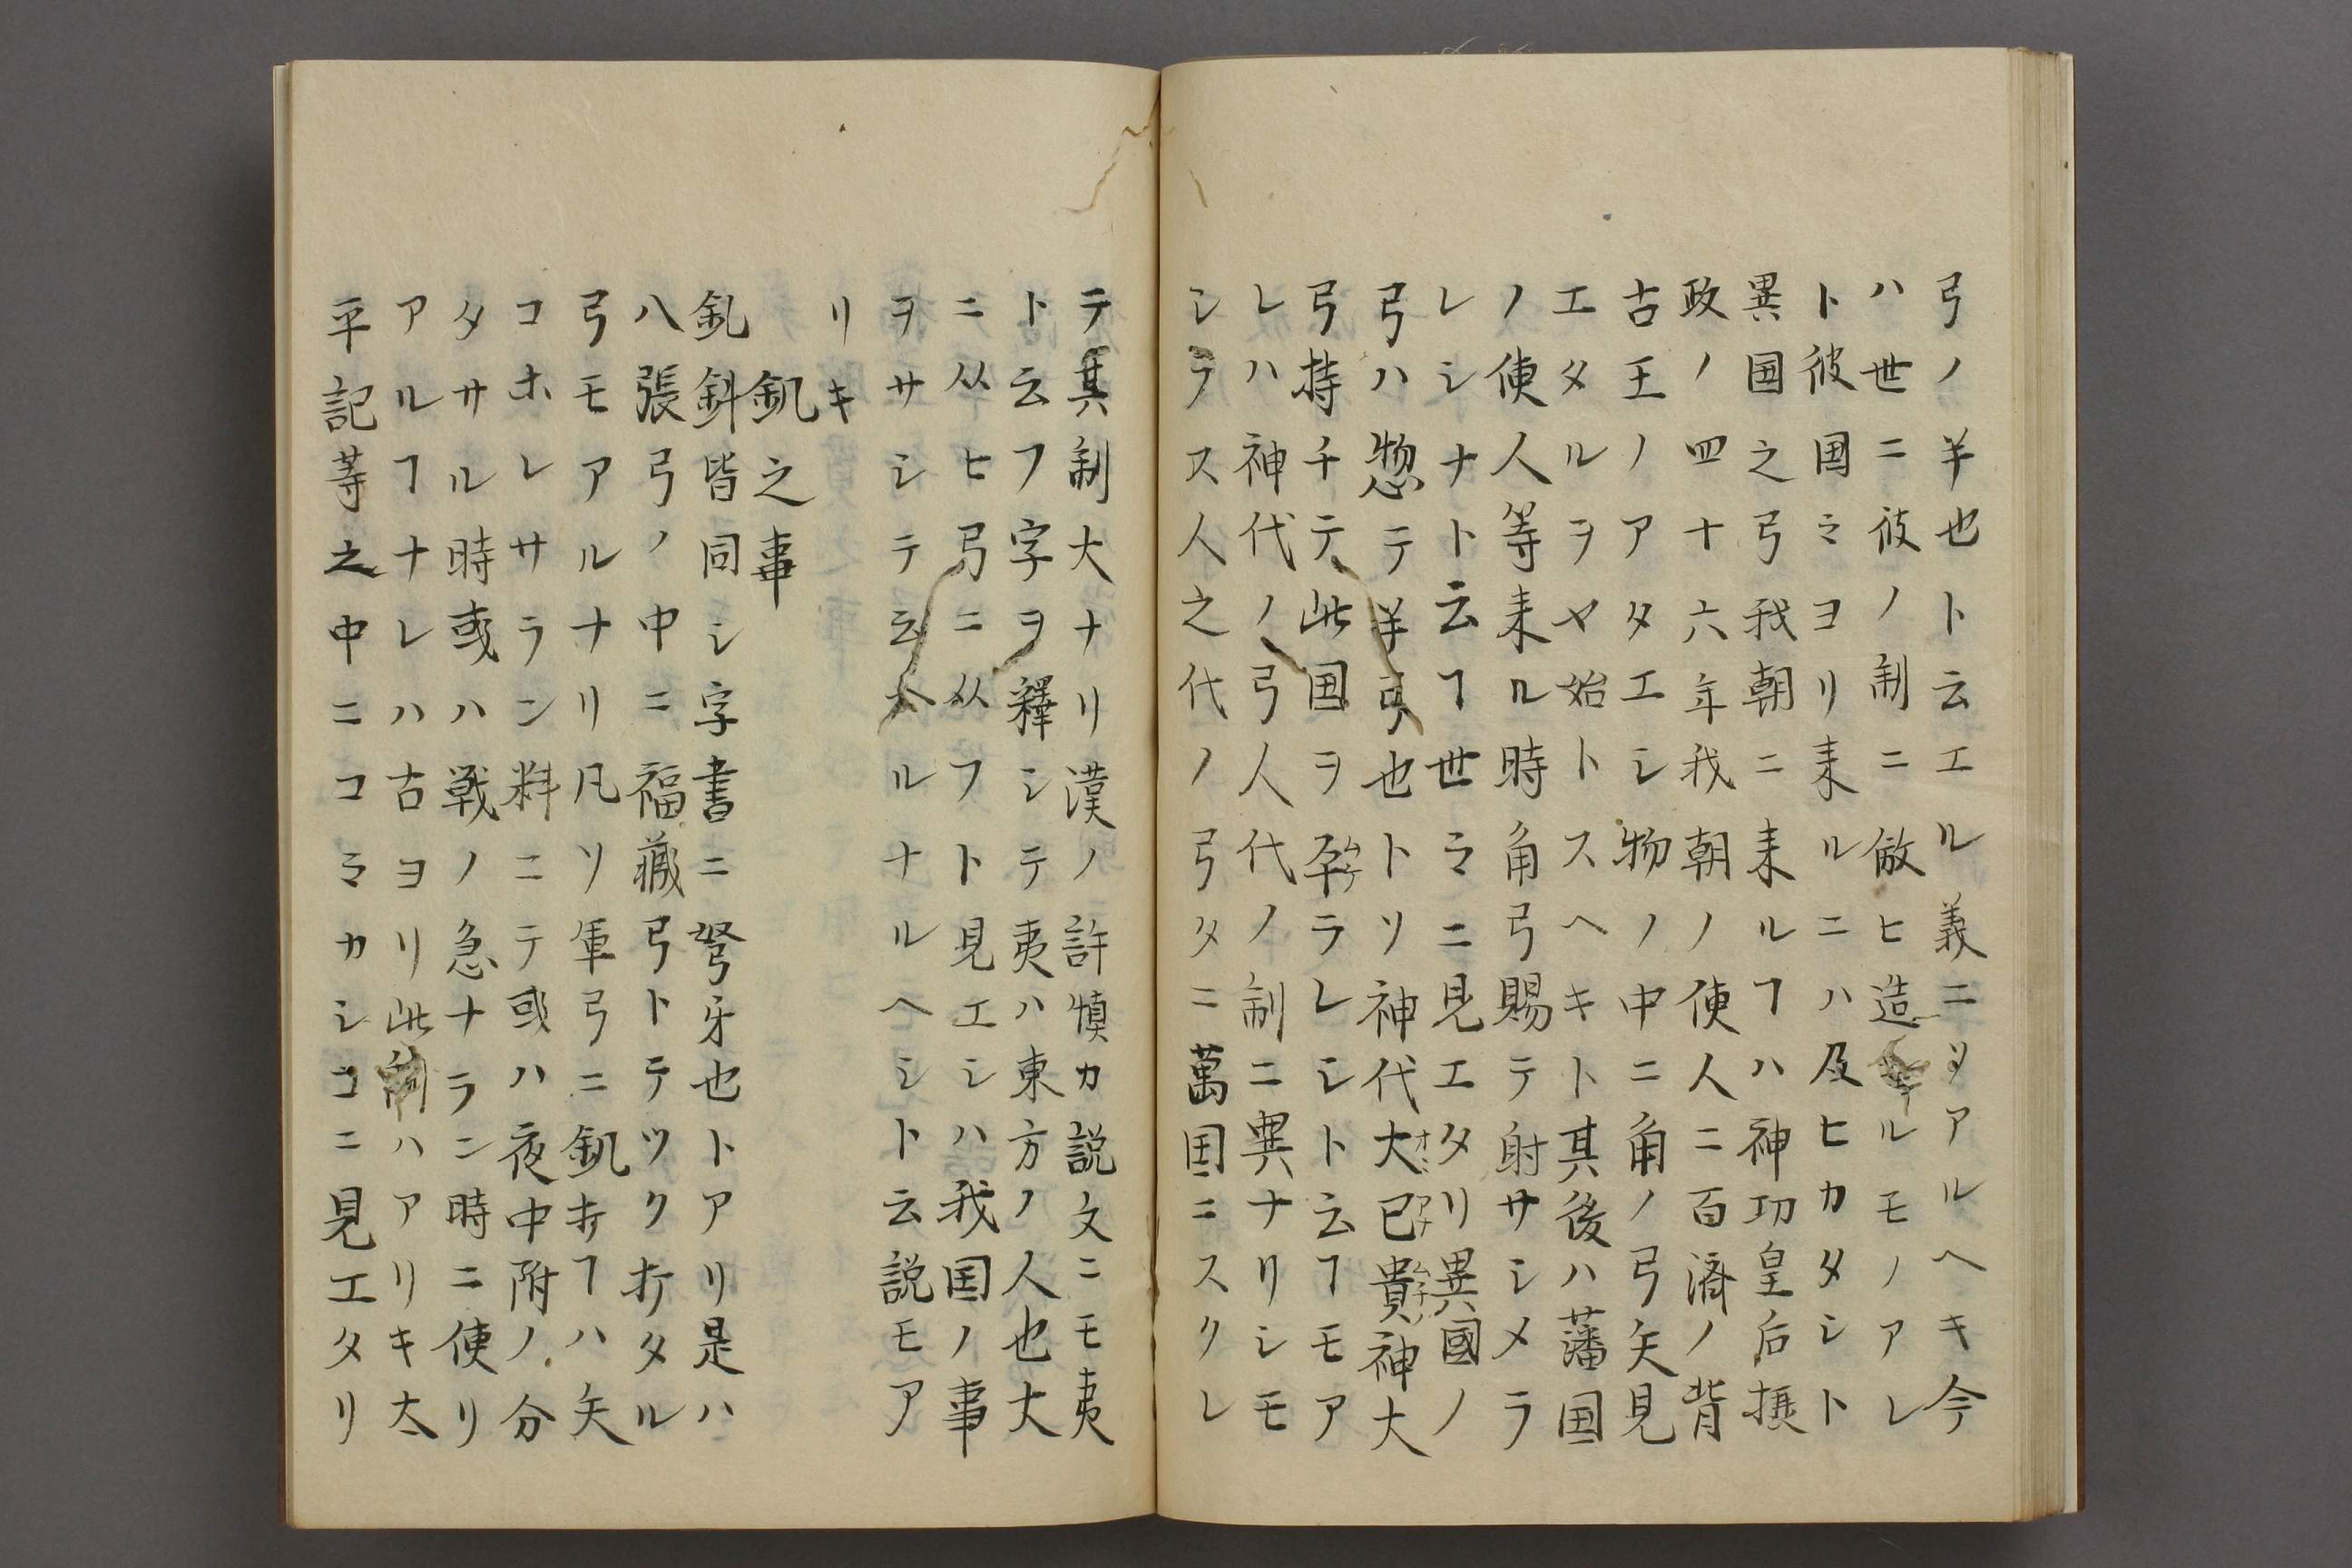 弓ノ羊也ト云エル義ニヤアルヘキ今
ハ世ニ彼ノ制ニ倣ヒ造ルモノアレ
ト彼国ミヨリ来ルニハ及ヒカタシト
異国之弓我朝ニ来ルヿハ神功皇后摂
政ノ四十六年我朝ノ使人ニ百済ノ背
古王ノアタエシ物ノ中ニ角ノ弓矢見
エタルヲヤ始トスヘキト其後ハ藩国
ノ使人等来ル時角弓賜テ射サシメラ
レシナト云ヿ世ミニ見エタリ異國ノ
弓ハ惣テ羊弓也トソ神代大已貴神大
弓持チテ此国ヲ平ラレシト云ヿモア
レハ神代ノ弓人代ノ制ニ異ナリシモ
シラス人之代ノ弓タニ萬国ニスクレ
テ其制大ナリ漢ノ許慎カ説文ニモ夷
ト云フ字ヲ釋シテ夷ハ東方ノ人也大
ニ从ヒ弓ニ从フト見エシハ我国ノ事
ヲサシテ云ヘルナルヘシト云説モア
リキ
釟之事
釟釪皆同シ字書ニ弩牙也トアリ是ハ
八張弓ノ中ニ福藏弓トテツク打タル
弓モアルナリ凡ソ軍弓ニ釟打ヿハ矢
コホレサラン料ニテ或ハ夜中附ノ分
タサル時或ハ戦ノ急ナラン時ニ使リ
アルヿナレハ古ヨリ此制ハアリキ太
平記等之中ニコミカシコニ見エタリ